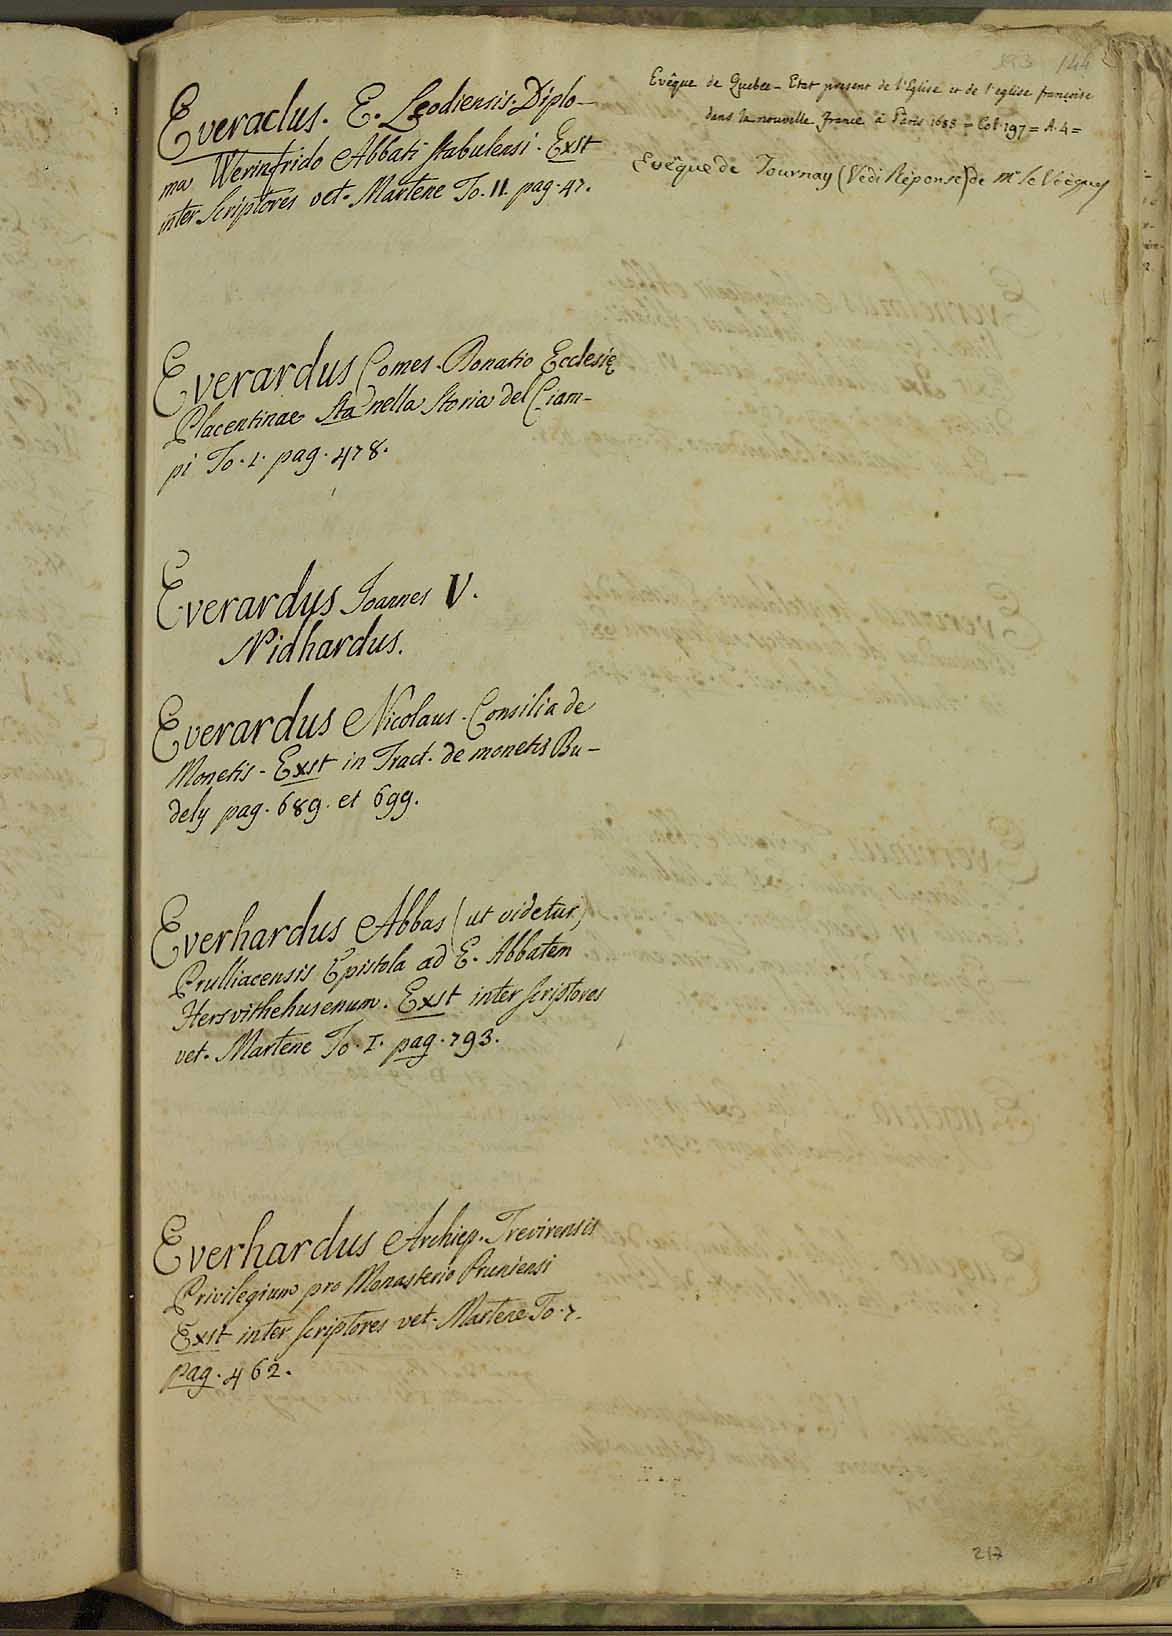 144
Everaclus. E. Leodiensis. Diplo-
ma Werinfrido Abbati Stabulensi. Exst
inter Scriptores vet. Martene To. II. pag. 47.
Everardus Comes. Donatio Ecclesię
Placentinae Sta nella Storia del Ciam-
pi To. I. pag. 478.
Everardus Joannes V.
Nidhardus.
Everardus Nicolaus. Consilia de
Monetis - Exst in Tract. de monetis Bu-
dely pag. 689. et 699.
Everhardus Abbas (ut videtur)
Prulliacensis Epistola ad E. Abbatem
Hersvithehusenum. Exst inter scriptores
vet. Martene To. I. pag. 793.
Everhardus Archiep. Trevirensis
Privilegium pro Monasterio Pruniensi
Exst inter scriptores vet. Martene To. 7.
pag. 462.
Evêque de Quebec - Etat present de l'Eglise et de l'eglise françoise
dans la nouvelle france à Paris 1688 = Col. 197 = A. 4 =
Evêque de Tournay (Vedi Réponse) de Mr
217